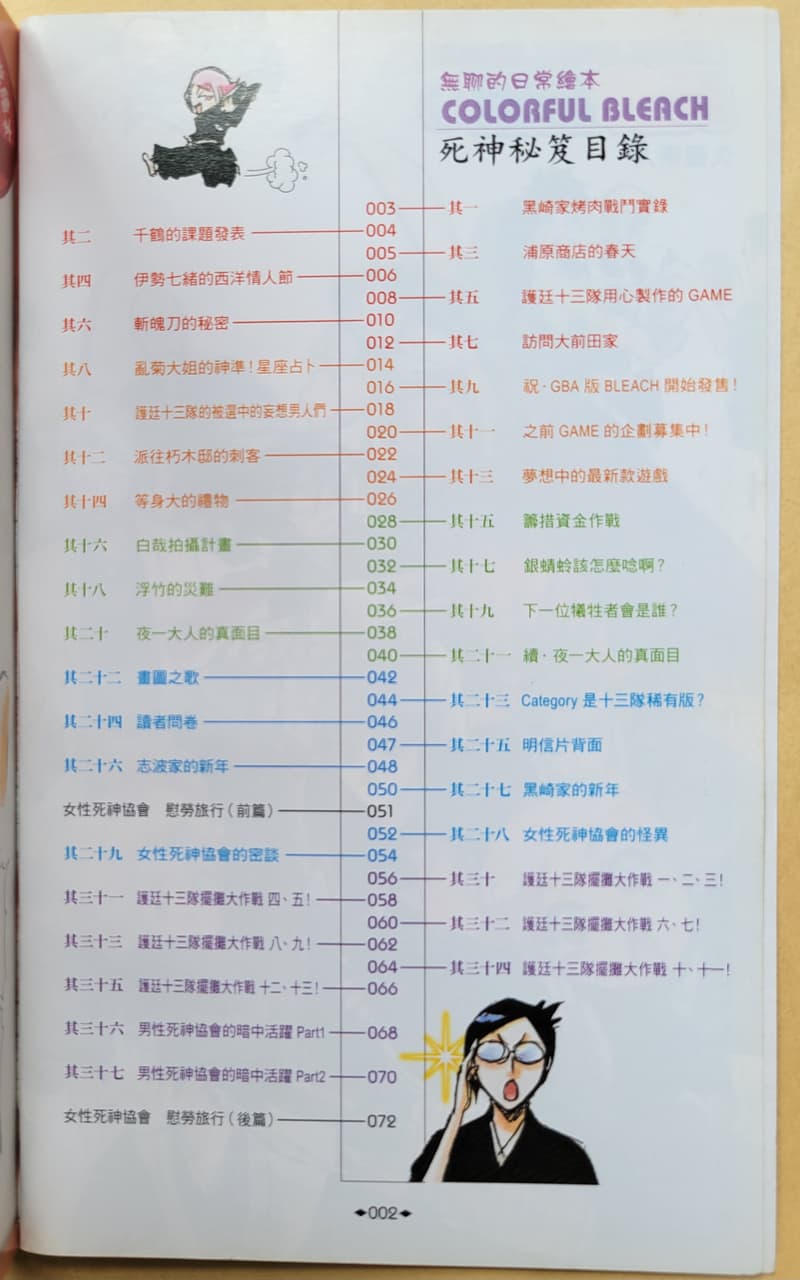 無聊的日常繪本
COLORFUL BLEACH
死神秘笈目錄
003 其一 黑崎家烤肉戰鬥實錄
其二 千鶴的課題發表 004
005 其三 浦原商店的春天
其四 伊勢七緒的西洋情人節 006
008 其五 護廷十三隊用心製作的 GAME
其六 斬魄刀的秘密 010
012 其七 訪問大前田家
其八 亂菊大姐的神準!星座占卜 014
016 其九 祝·GBA 版 BLEACH 開始發售!
其十 護廷十三隊的被選中的妄想男人們 018
020 其十一 之前 GAME 的企劃募集中!
其十二 派往朽木邸的刺客 022
024 其十三 夢想中的最新款遊戲
其十四 等身大的禮物 026
028 其十五 籌措資金作戰
其十六 白哉拍攝計畫 030
032 其十七 銀蜻蛉該怎麼唸啊?
其十八 浮竹的災難 034
036 其十九 下一位犧牲者會是誰?
其二十 夜一大人的真面目 038
040 其二十一 續·夜一大人的真面目
其二十二 畫圖之歌 042
044 其二十三 Category 是十三隊稀有版?
其二十四 讀者問卷 046
047 其二十五 明信片背面
其二十六 志波家的新年 048
050 其二十七 黑崎家的新年
女性死神協會 慰勞旅行(前篇) 051
052 其二十八 女性死神協會的怪異
其二十九 女性死神協會的密談 054
056 其三十 護廷十三隊擺攤大作戰 一、二、三!
其三十一 護廷十三隊擺攤大作戰 四、五! 058
060 其三十二 護廷十三隊擺攤大作戰 六、七!
其三十三 護廷十三隊擺攤大作戰 八、九! 062
064 其三十四 護廷十三隊擺攤大作戰 十、十一!
其三十五 護廷十三隊擺攤大作戰 十二、十三! 066
其三十六 男性死神協會的暗中活躍 Part1 068
其三十七 男性死神協會的暗中活躍 Part2 070
女性死神協會 慰勞旅行(後篇) 072
002